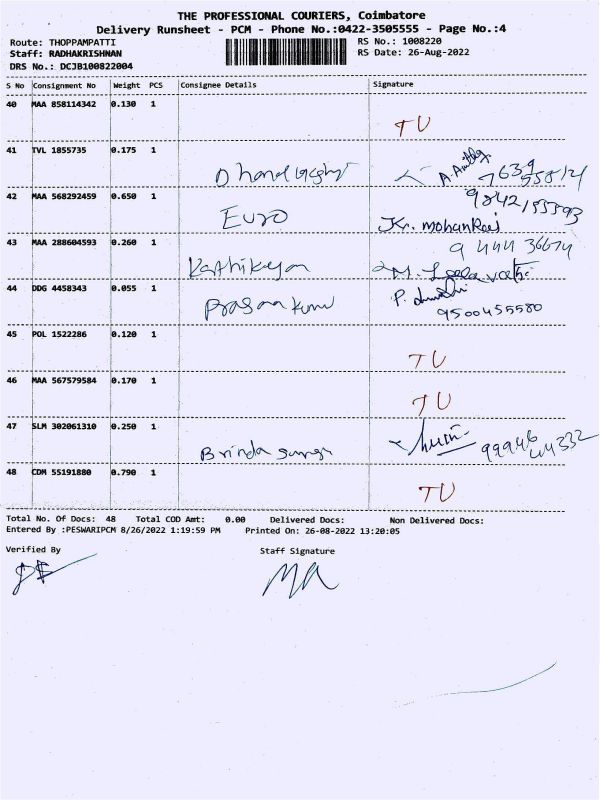 THE PROFESSIONAL COURIERS, Coimbatore
Delivery Runsheet - PCM - Phone No.:0422-3505555 - Page No.:4
Route: THOPPAMPATTI
RS No.: 1008220
Staff: RADHAKRISHNAN
RS Date: 26-Aug-2022
DRS No.: DCJB100822004
S No Consignment No Weight PCS Consignee Details Signature
40 MAA 858114342 0.130 1
TU
41 TVL 1855735 0.175 1
42 MAA 568292459 0.650 1
EURO
9842155593
Jr. mohanRaj
43 MAA 288604593 0.260 1
Karthikeyan
M. Leelavathi
44 DDG 4458343 0.055 1
P.
9500455580
45 POL 1522286 0.120 1
TU
46 MAA 567579584 0.170 1
TU
47 SLM 302061310 0.250 1
Brinda
99946 44332
48 CDM 55191880 0.790 1
TU
Total No. Of Docs: 48 Total COD Amt: 0.00 Delivered Docs: Non Delivered Docs:
Entered By :PESWARIPCM 8/26/2022 1:19:59 PM Printed On: 26-08-2022 13:20:05
Verified By Staff Signature